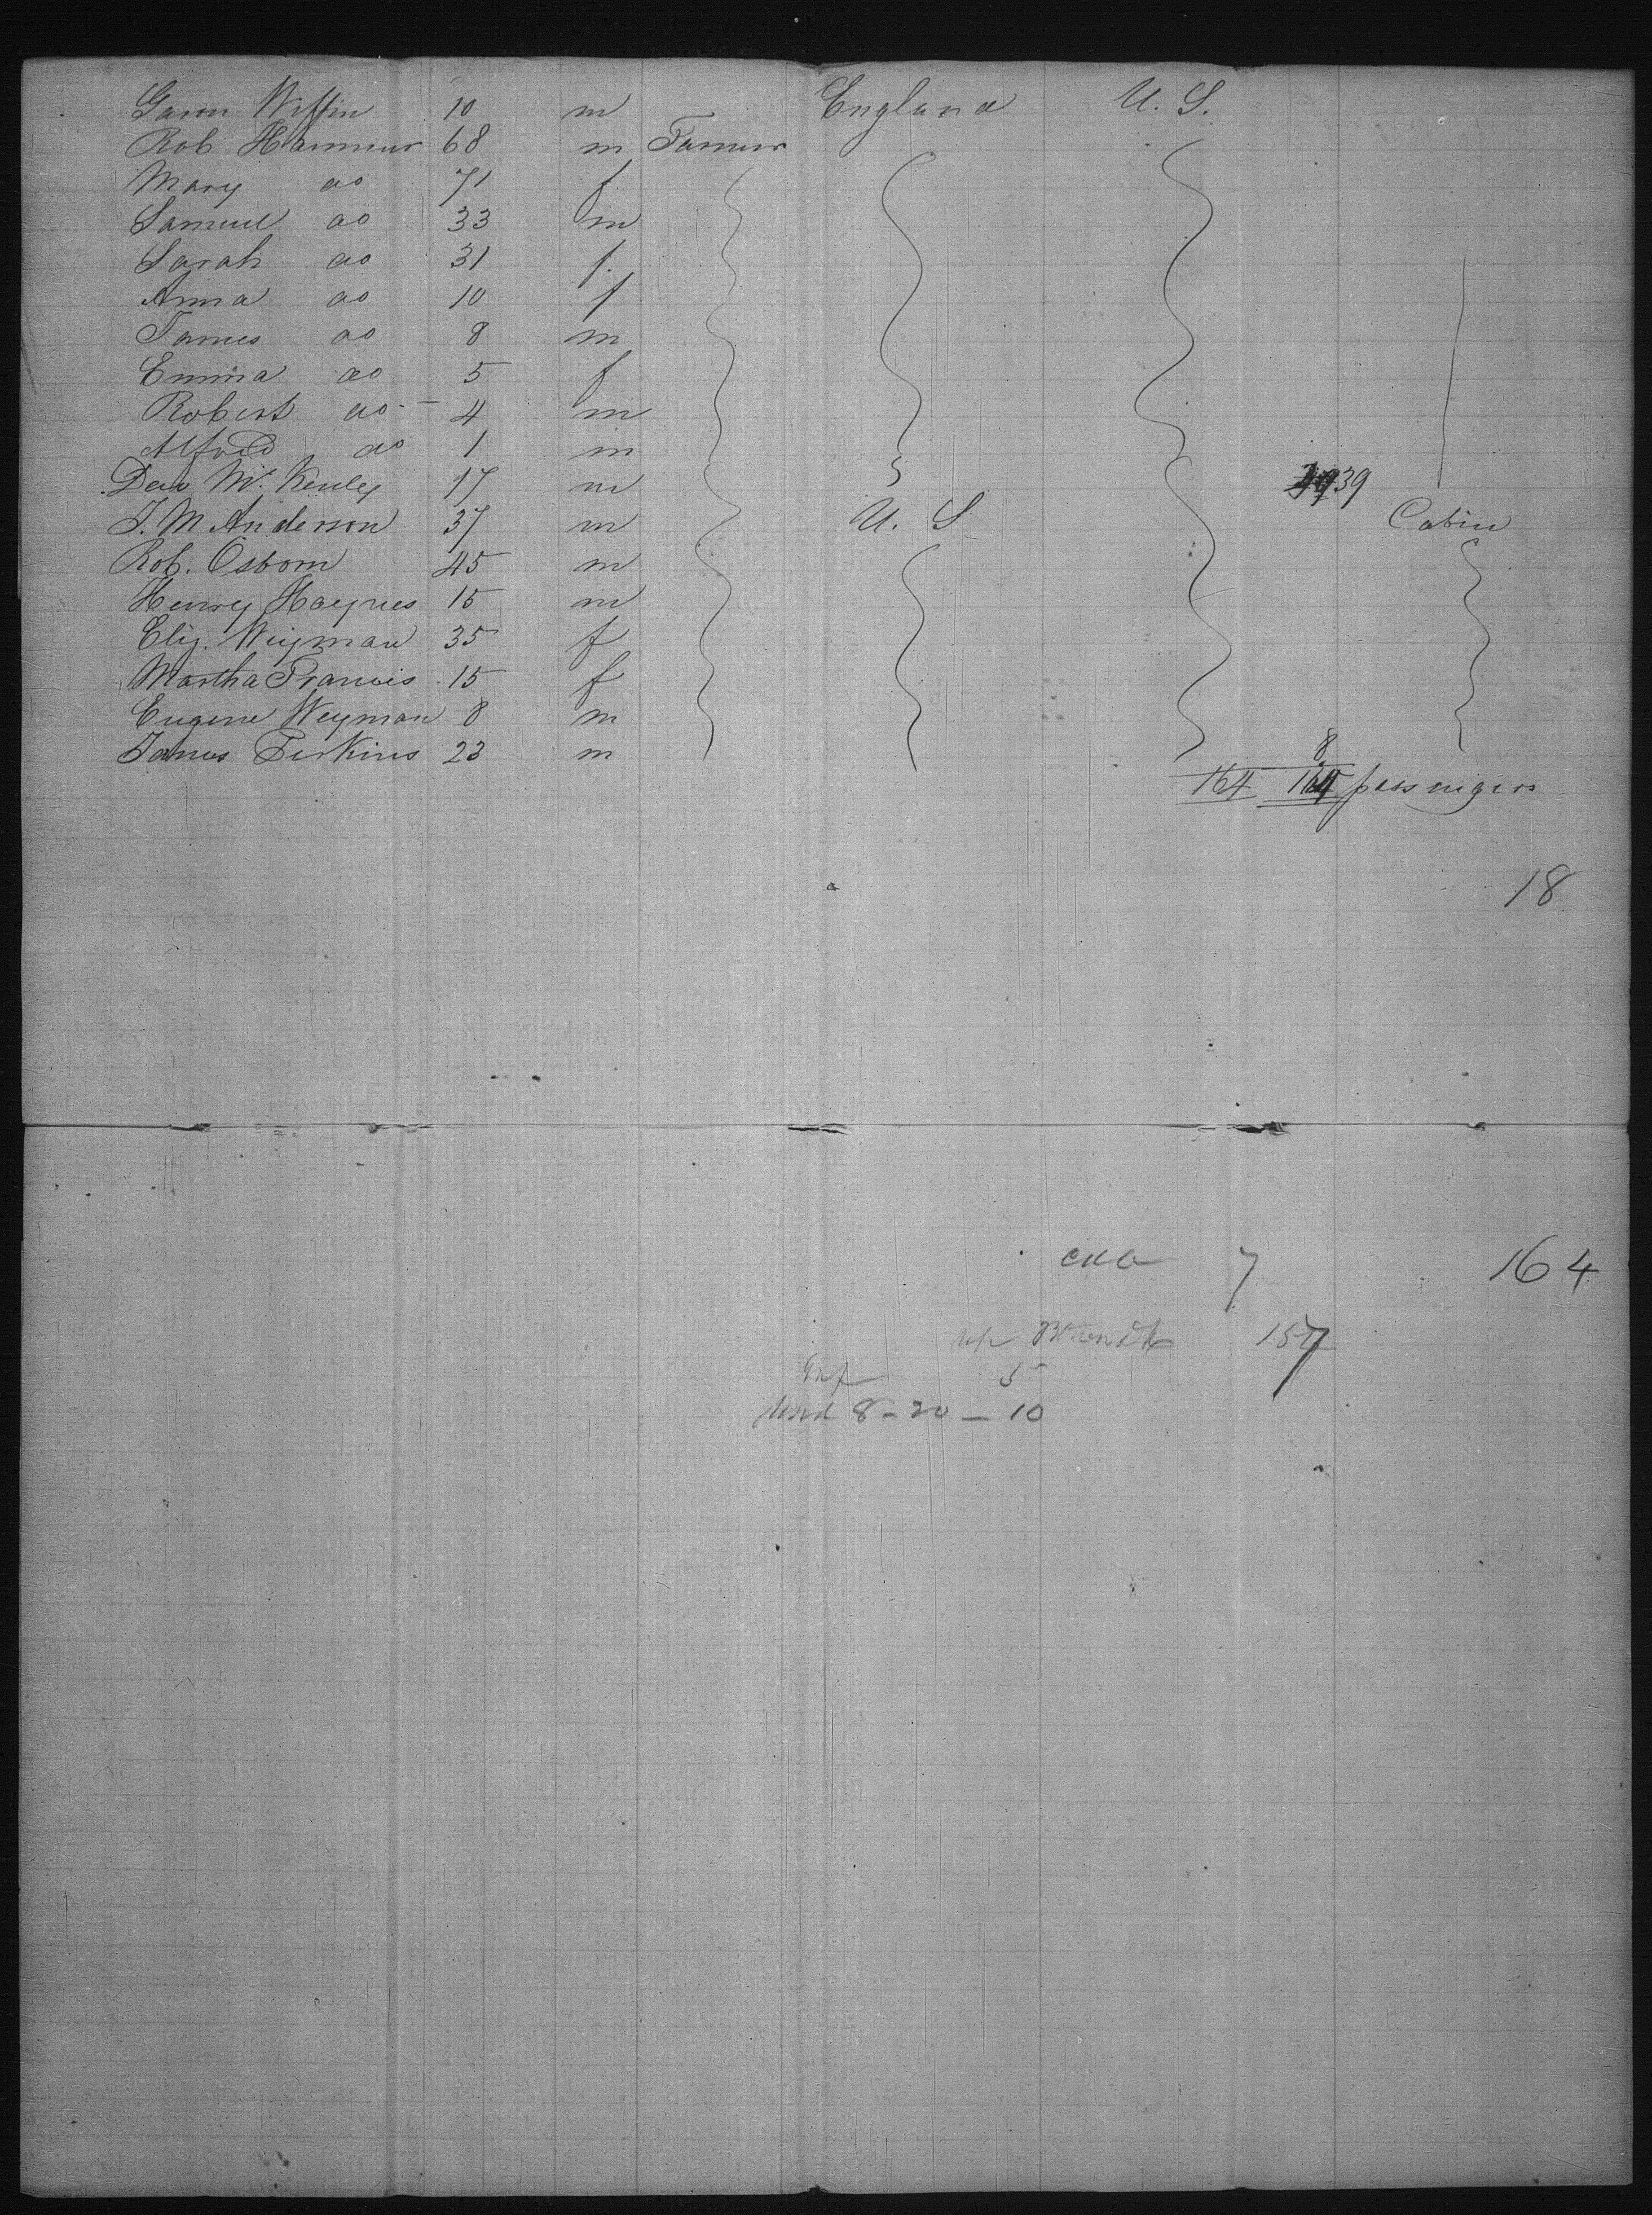 Garon Wiffin 10 m England U. S.
Rob Hammur 68 m Farmer
Mary do 71 f
Samuel do 33 m
Sarah do 31 f.
Anna do 10 f
James do 8 m
Emma do 5 f
Robert do - 4 m
Alfred do 1 m
Dav Mc. Kenley 17 m 39
J. M Anderson 37 m U. S Cabin
Rob. Osborn 45 m
Henry Haynes 15 m
Eliz. Weyman 35 f
Martha Francis 15 f
Eugene Weyman 8 m
James Perkins 23 m 8
164 164 passengers
18
7 164
157
Inf 5
8 - 20 - 10